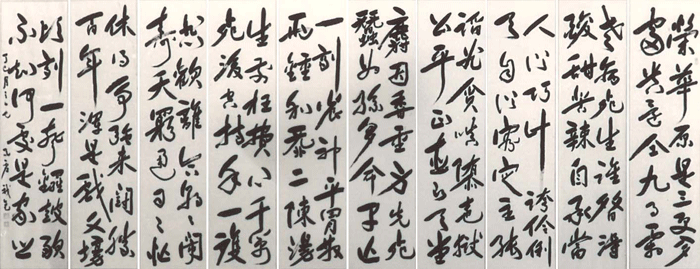 榮華原是三更夢
富貴還同九月霜
老病死生誰替得
酸甜苦辣自承當
人從巧計誇伶俐
天自從容定主張
諂曲貪嗔墮地獄
公平正直即天堂
麝因香重身先死
蠶為絲多命早亡
一劑養神平胃散
兩鍾和氣二陳湯
生前枉費心千萬
死後空持手一雙
悲歡離合朝朝鬧
壽夭窮通日日忙
休得爭強來鬥勝
百年渾是戲文場
頃刻一聲鑼鼓歇
不知何處是家鄉